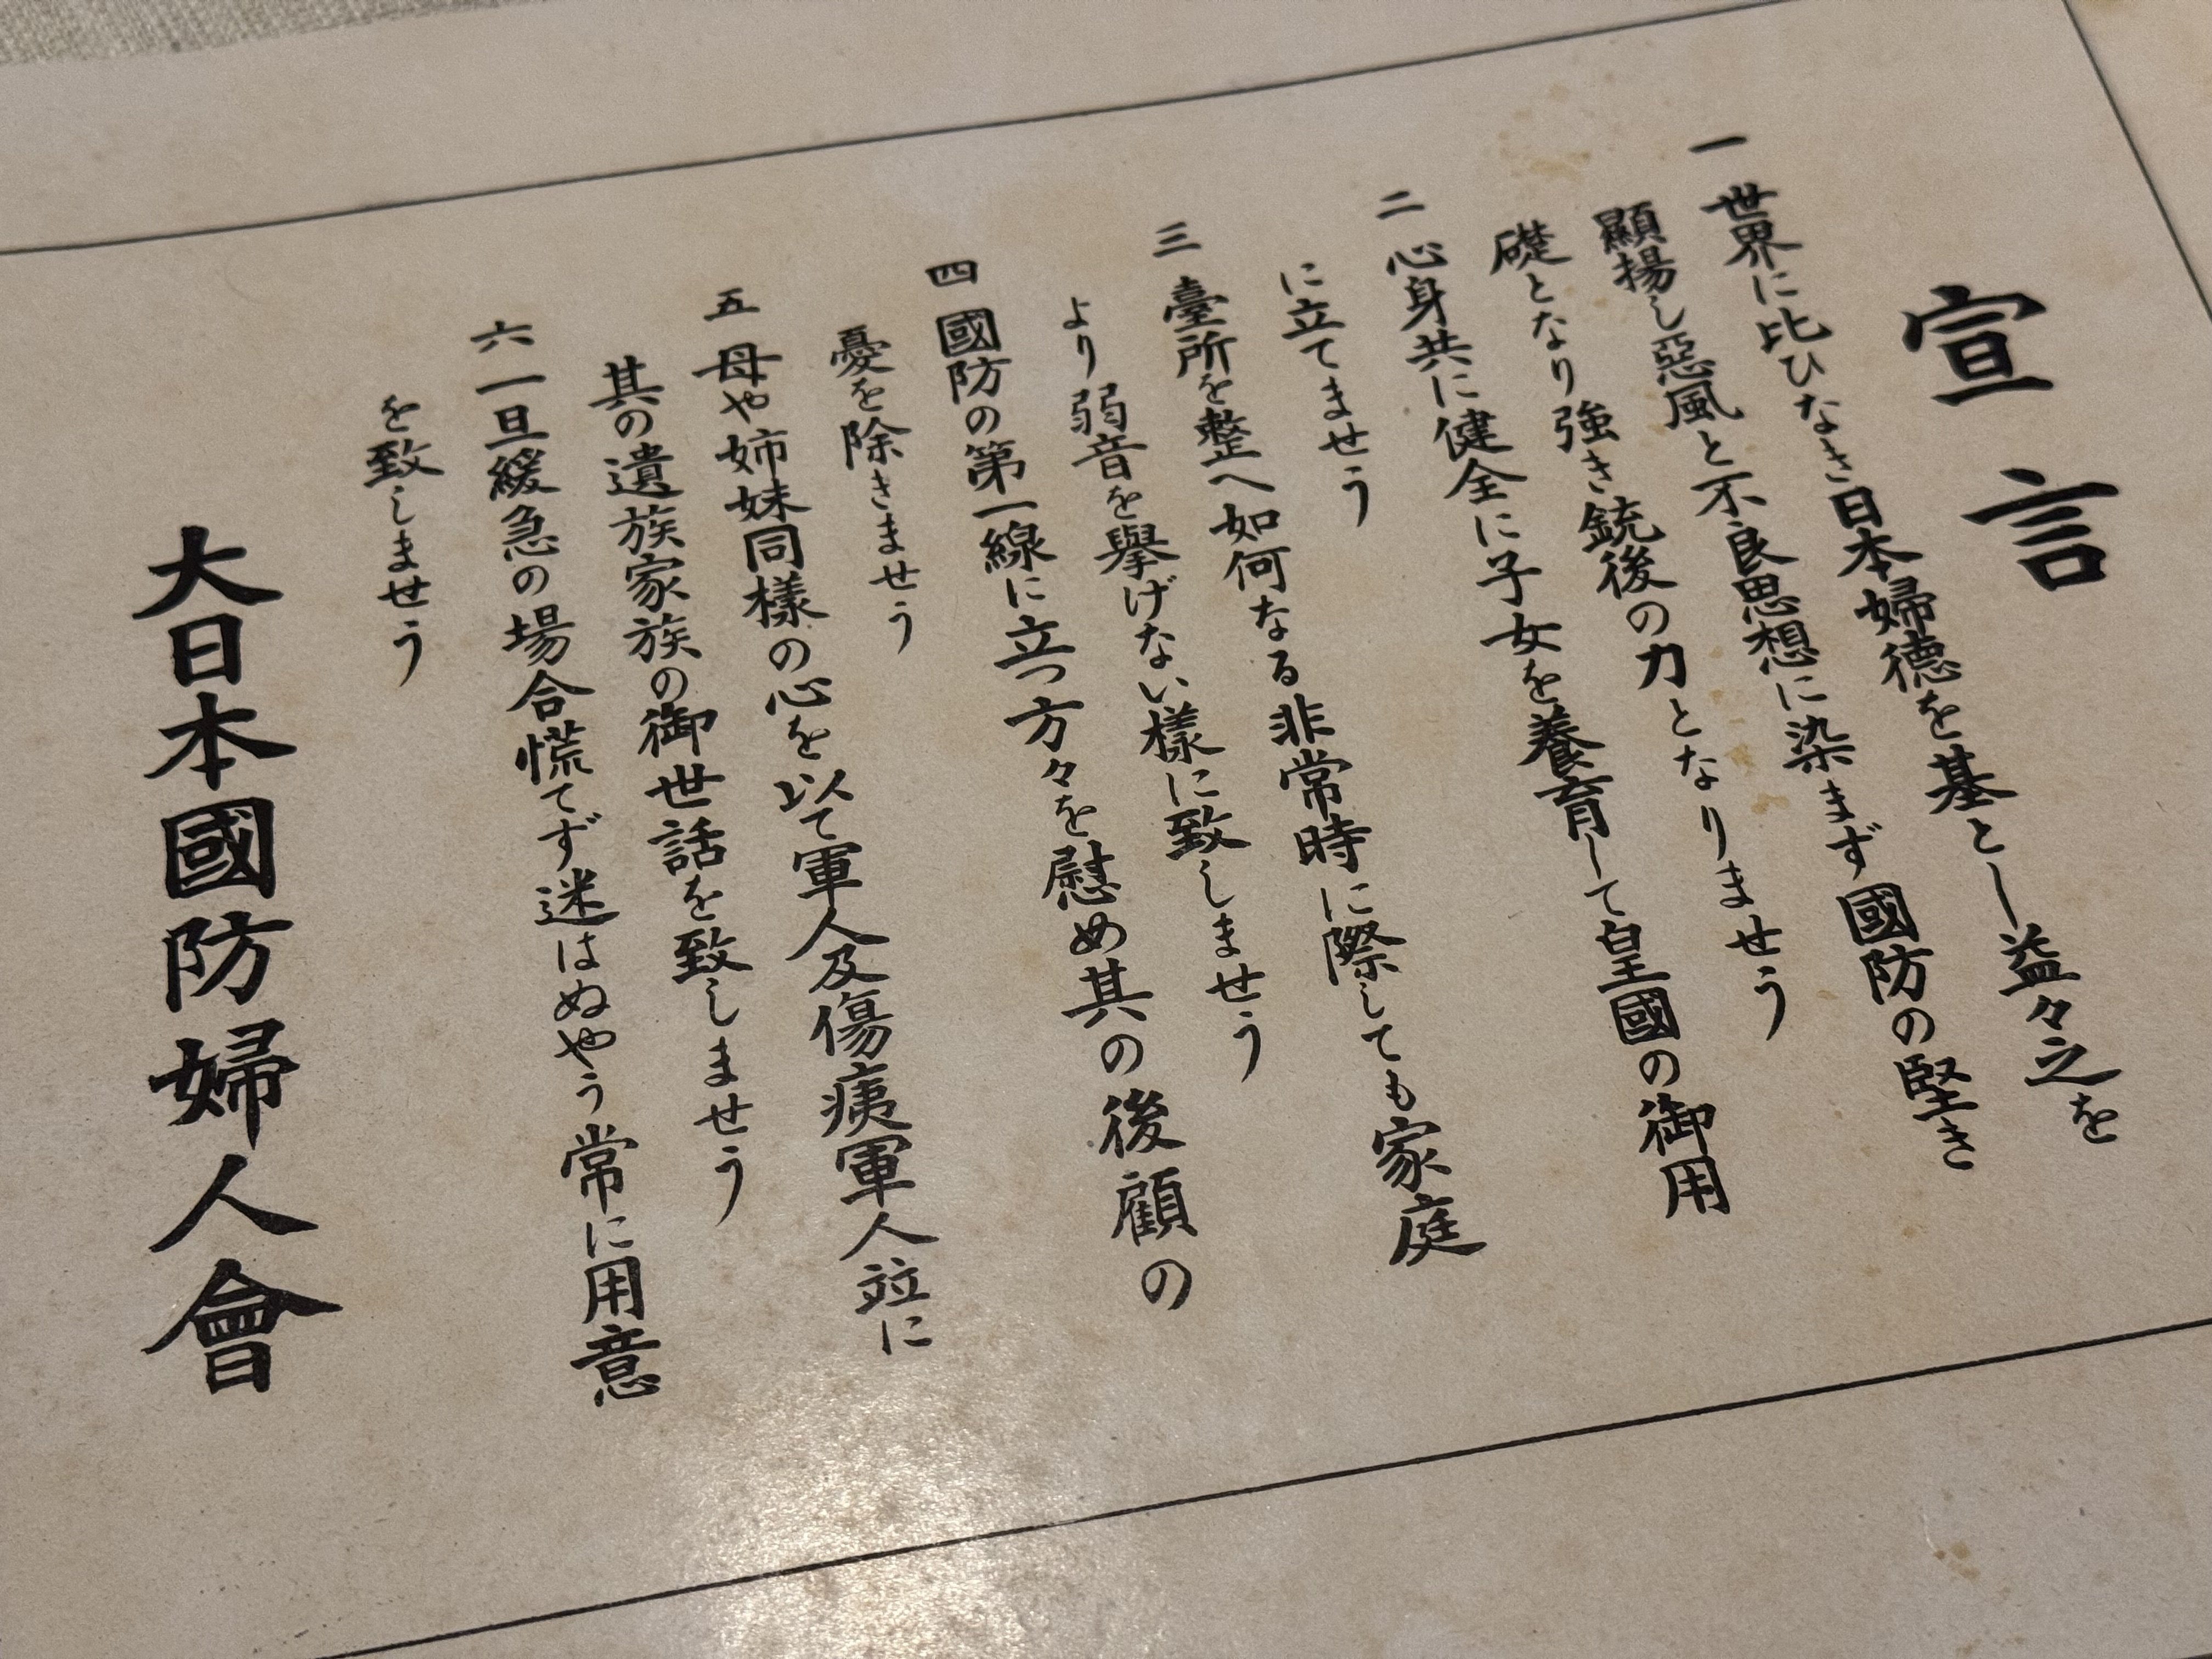 宣言
一 世界に比ひなき日本婦德を基とし益々之を
顯揚し惡風と不良思想に染まず國防の堅き
礎となり強き銃後の力となりませう
二 心身共に健全に子女を養育して皇國の御用
に立てませう
三 臺所を整へ如何なる非常時に際しても家庭
より弱音を擧げない樣に致しませう
四 國防の第一線に立つ方々を慰め其の後顧の
憂を除きませう
五 母や姉妹同樣の心を以て軍人及傷痍軍人竝に
其の遺族家族の御世話を致しませう
六 一旦緩急の場合慌てず迷はぬやう常に用意
を致しませう
大日本國防婦人會